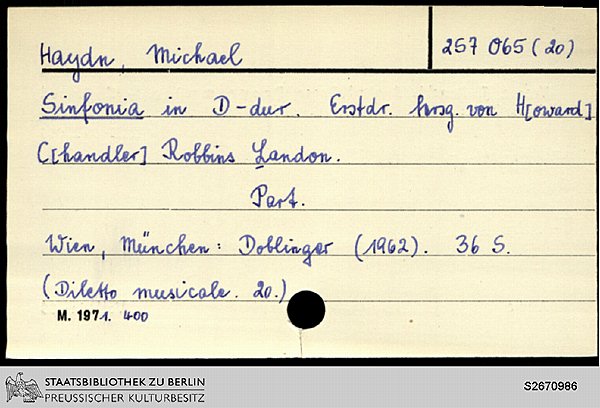 Haydn, Michael
257 065 (20)
Sinfonia in D-dur. Erstdr. hrsg. von H[oward]
C[handler] Robbins Landon.
Part.
Wien, München: Doblinger (1962). 36 S.
(Diletto musicale. 20.)
M. 1971. 400
STAATSBIBLIOTHEK ZU BERLIN
PREUSSISCHER KULTURBESITZ
S2670986